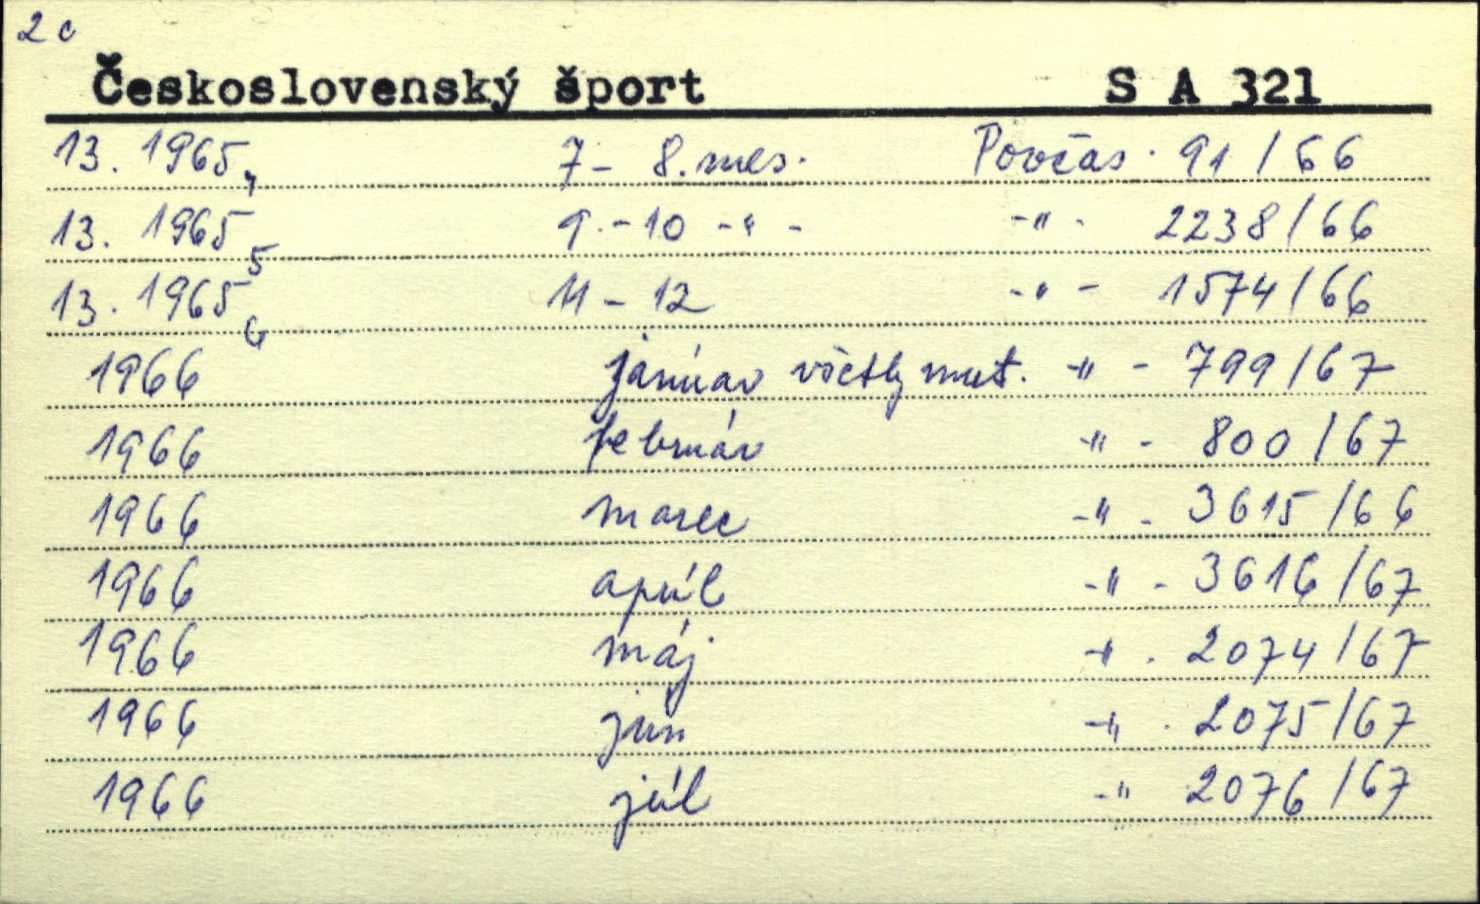 2c
Československý šport S A 321
13. 1965, 4 7 - 8. mes. Povčas. 91/66
13. 1965 5 9. - 10 - " - - " - 2238/66
13. 1965 6 11 - 12 - " - 1574/66
1966 január všetky mut. - " - 799/67
1966 február - " - 800/67
1966 marec - " - 3615/66
1966 apríl - " - 3616/67
1966 máj - " - 2074/67
1966 jun - " - 2075/67
1966 júl - " 2076/67